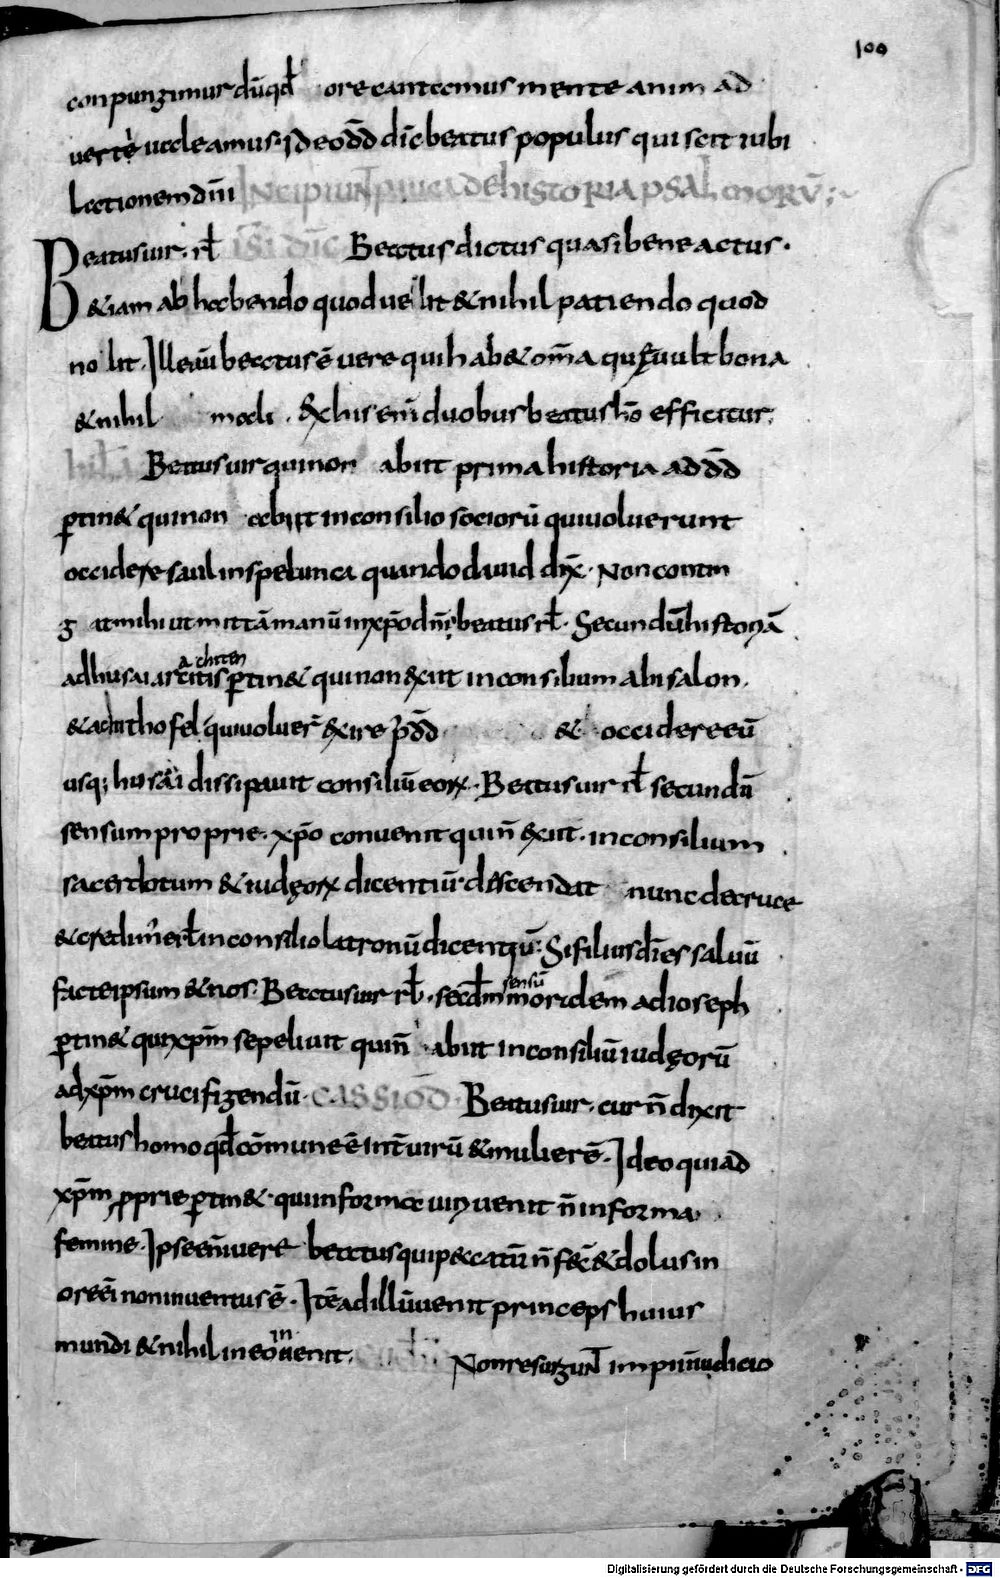 100
conpungimur dũ qđ ore cantamus mente anim ad
uertè ualeamus · Ideo dđ dīc beatus populus qui scit iubi
Lectionem diuī INcipiunt pauca de historia psalmorũ;
Beatus uir · rł isīd dīc Beatus dictus quasi bene actus ·
&iam ab habendo quod uellit & nihil patiendo quod
nolit · Ille aũ beatus ē uere qui hab& om̄a quę uult bona
& nihil mali · Ex his enī duobus beatus hō efficitur;
hił Beatus uir qui non abiit prima historia ad dđ
ptin& qui non abiit in consilio sociorũ qui uoluerunt
occidere saul in spelunca quando dauid dix̄ · Non contin
g at mihi ut mittā manū in xp̄o dn̄i beatus rł · Secundũ historiā
achiten
adhusai arcitis ptin& qui non exiit in consilium abisalon ·
& achithofel qui uoluer̄ exire p̄ dđ & occidere eũ
usq; husai dissipauit consiliũ eoꝝ · Beatus uir rł secundũ
sensum proprie · xp̄o conuenit qui n̄ exiit · in consilium
sacerdotum & iudęoꝝ dicentiũ · descendat nunc de cruce
& credim̄ ei rł in consilio latronũ dicentiũ · Si filius dī es saluũ
sensũ
fac te ipsum & nos · Beatus uir rł · secđm moridem ad ioseph
ptin& qui xp̄m sepeliuit qui n̄ abiit in consiliũ iudęorũ
ad xp̄m crucifigendũ · cassiod · Beatus uir · cur n̄ dixit
beatus homo qđ cōmune ē int̄ uirũ & mulierē · Ideo quia ad
xp̄m proprie ptin& · qui in forma uiri uenit n̄ in forma
femine · Ipse enī uere beatus qui peccatũ n̄ fec̄ & dolus in
ore eī non inuentus ē · Itē ad illũ uenit princeps huius
in
mundi & nihil in eo uenit · Non resurgunt impii in iudicio
Digitalisierung gefördert durch die Deutsche Forschungsgemeinschaft - DFG